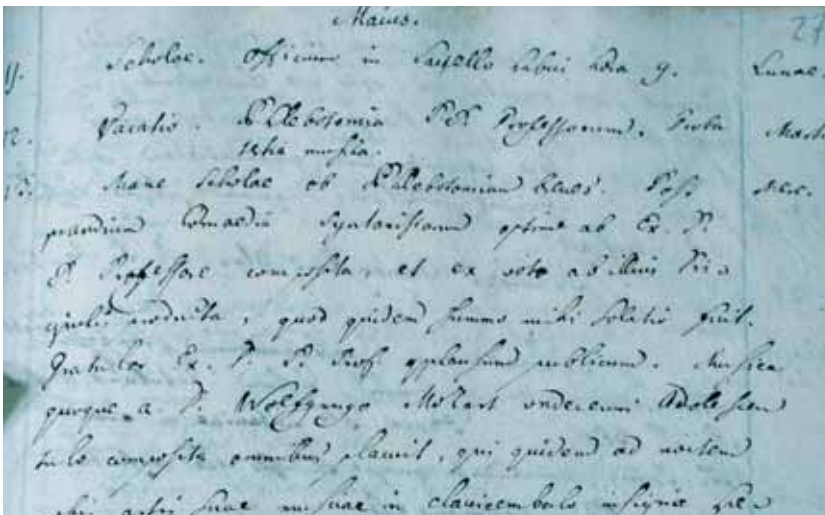 Maius. 27
11. Scholae. Officium in Sacello hora 9. Lunae.
12. Vacatio. Phlebotomia P.P. Professorum. Proba Mart
musica.
13. Mane Scholae ob Phlebotomiam breves. Post Mer.
prandium Comoedia Syntaxistarum optime ab Ex. P.
P. Professore composita, et ex voto ab illius Dis=
cipulis producta, quod quidem summo mihi solatio fuit.
Gratulor Ex. P. P. Prof. applausum publicum. Musica
quoque a D. Wolfgango Mozart undecenni Adolescen
tulo composita omnibus placuit, qui quidem ad noctem
artis suae musicae in clavicembalo insignia spe=